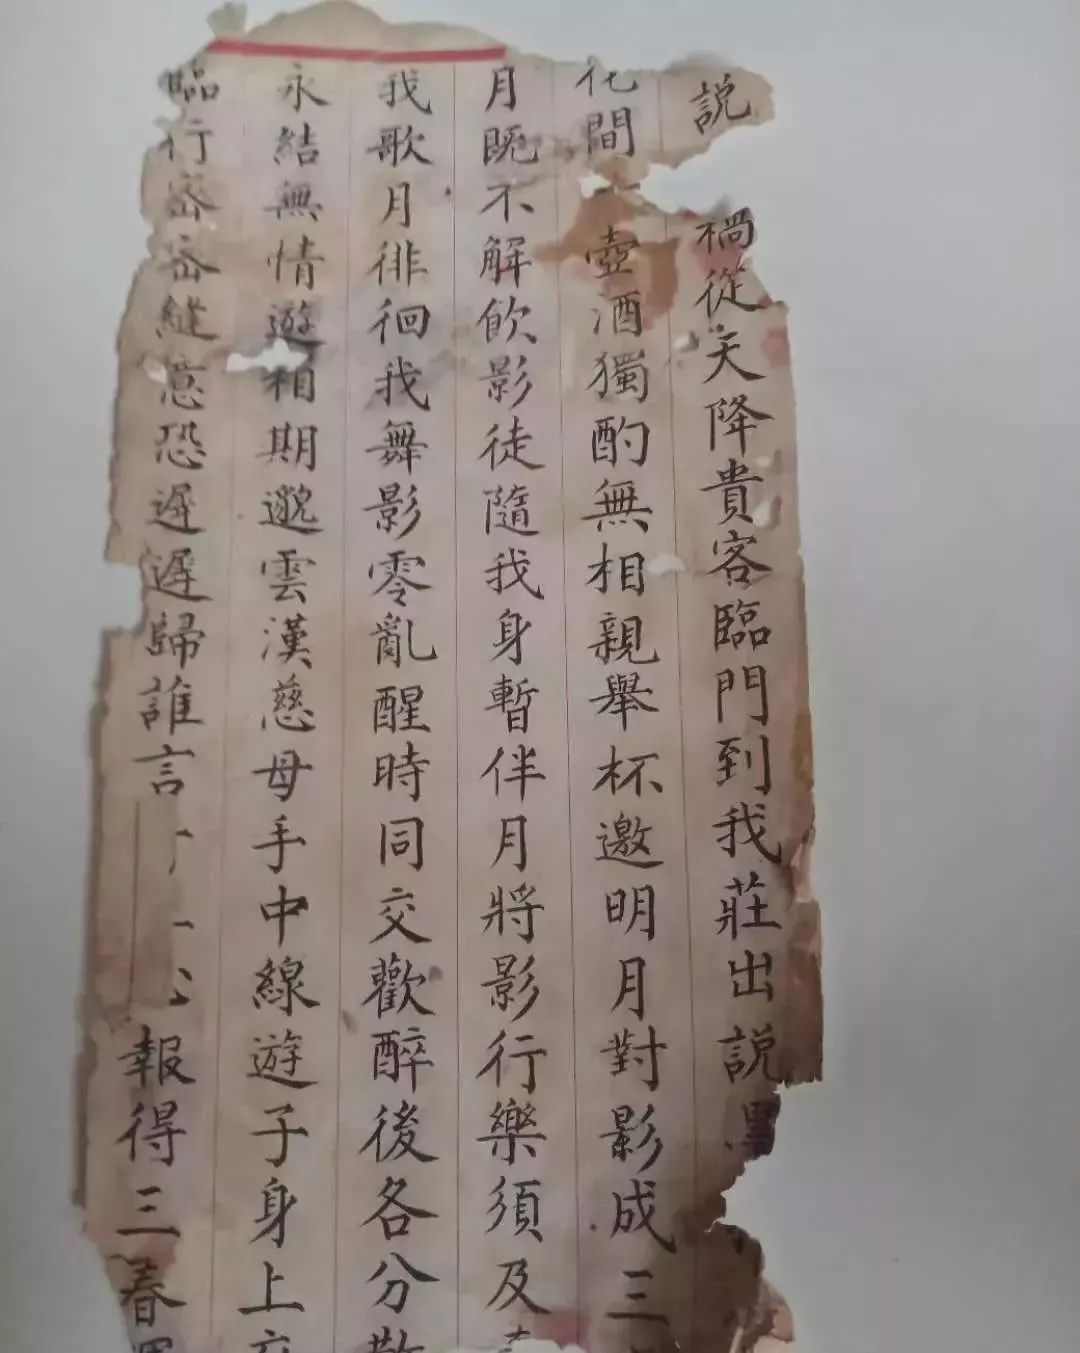 説 禍從天降貴客臨門到我莊出説
花間 壺酒獨酌無相親舉杯邀明月對影成三
月既不解飲影徒隨我身暫伴月將影行樂須及
我歌月徘徊我舞影零亂醒時同交歡醉後各分散
永結無情遊相期邈雲漢慈母手中線遊子身上
臨行密密縫意恐遲遲歸誰言 報得三春